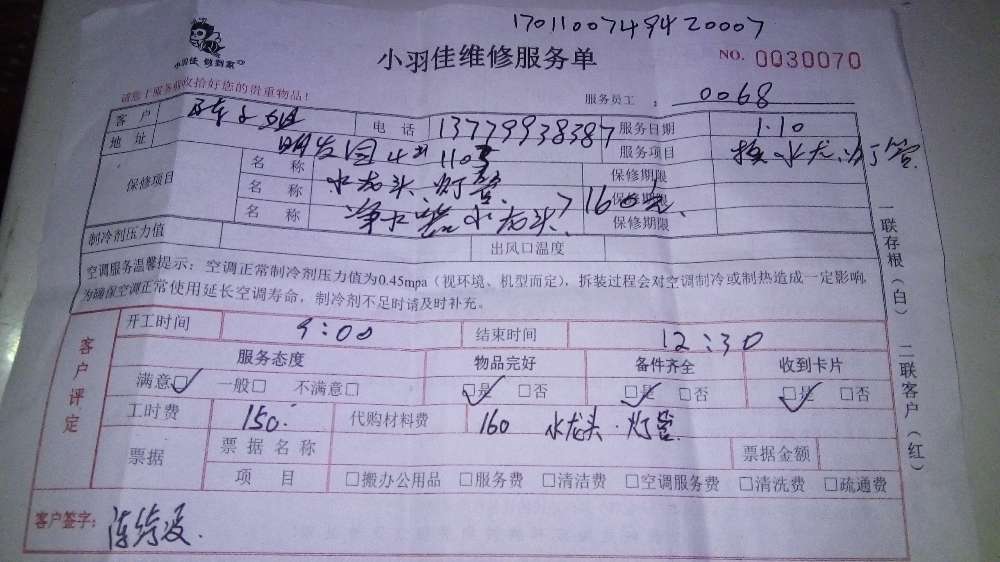 17011007494420007
小羽佳 做到家
小羽佳维修服务单
NO. 0030070
请您于服务前收拾好您的贵重物品！
服务员工： 0068
客户 陈小姐 电话 13779938387 服务日期 1.10
地址 明发园 1103 服务项目 换水龙.灯管
保修项目
名称 水龙头.灯管 保修期限
名称 净水器水龙头 160元 保修期限
名称 保修期限
制冷剂压力值 出风口温度
空调服务温馨提示：空调正常制冷剂压力值为0.45mpa（视环境、机型而定），拆装过程会对空调制冷或制热造成一定影响，
为确保空调正常使用延长空调寿命，制冷剂不足时请及时补充。
客户评定
开工时间 9:00 结束时间 12:30
服务态度 物品完好 备件齐全 收到卡片
满意□ 一般□ 不满意□ □是 □否 □是 □否 □是 □否
工时费 150. 代购材料费 160 水龙头.灯管
票据 票据名称 票据金额
项目 □搬办公用品 □服务费 □清洁费 □空调服务费 □清洗费 □疏通费
客户签字：陈
一联存根（白） 二联客户（红）